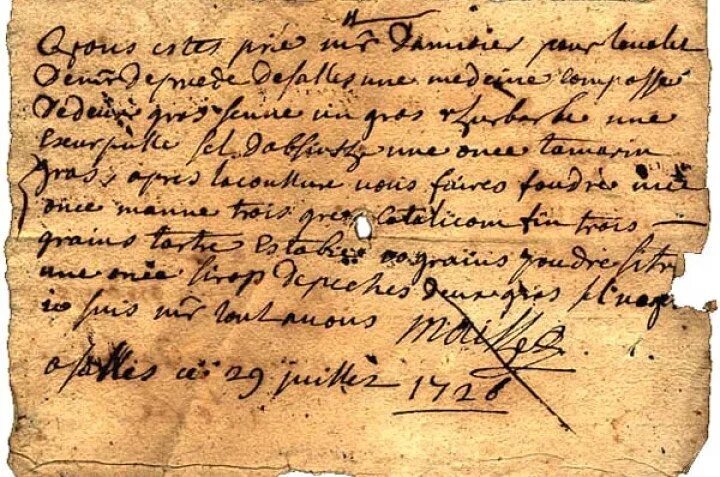 Vous estes prié mr Damoier pour le valet
De mr De priede De salles une medecine composse
De deux gros senne un gros Rhurbarbe une
sel D'absint une once tamarin
gras, apres la coulture vous faires foudre une
once manne trois gros Catolicom fin trois
grains tartre Estabié 20 grains poudre
une once sirop De peches deux gros sel
ie suis mr tout a vous
a salles ce 29 juillet 1726